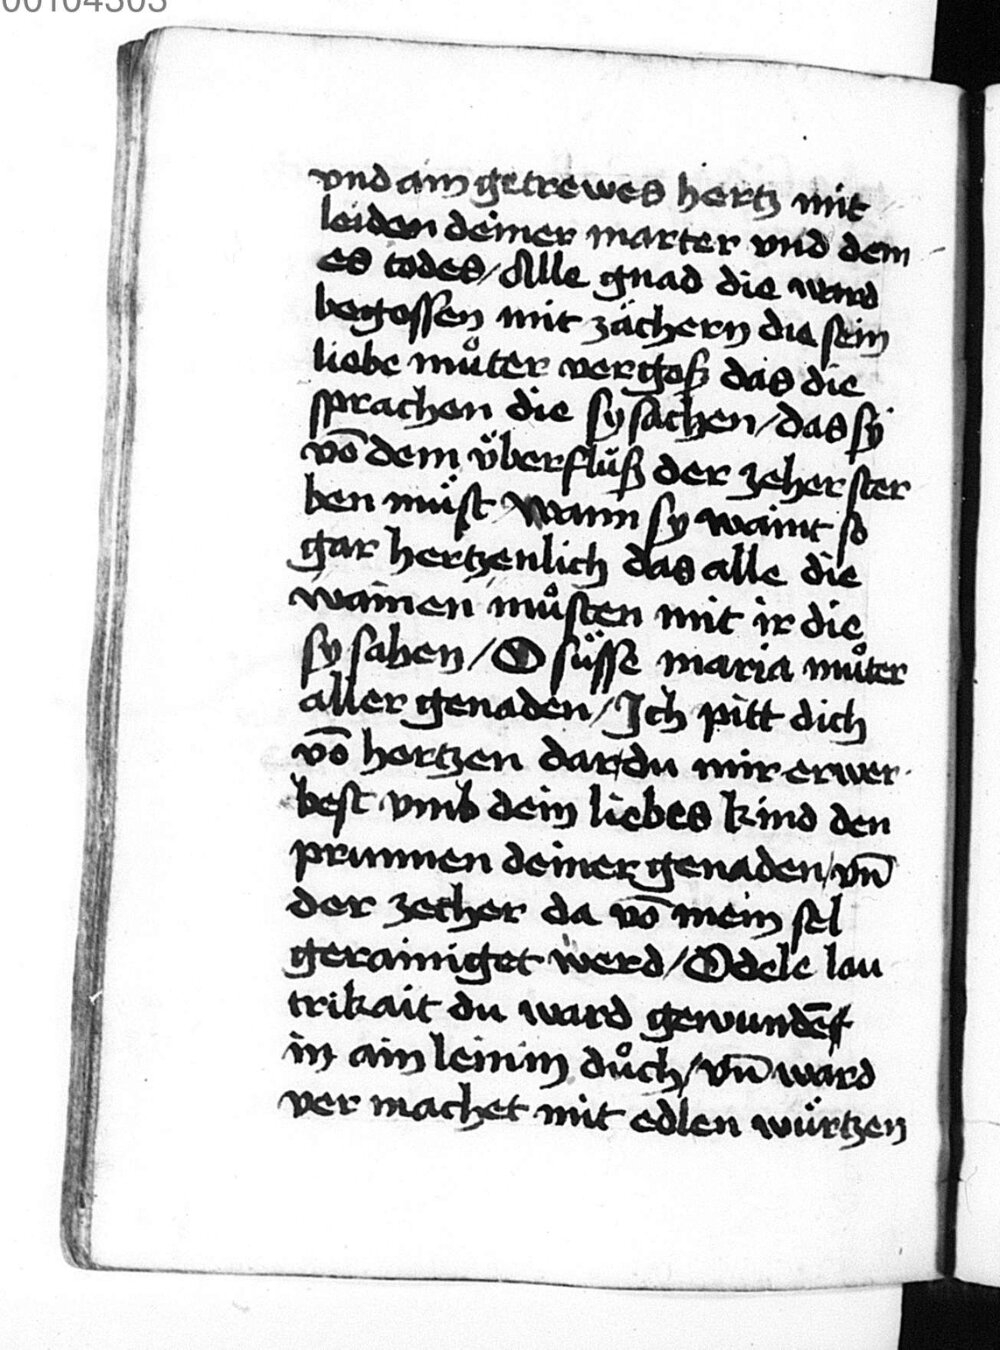 00104303
vnd ain getrewes hertz mit
leiden deiner marter vnd dein
es todes / Alle gnad die ward
begossen mit zächern die sein
liebe můter vergoß das die
sprachen die sy sachen / das sy
vō dem v̈berfluß der zeher ster
ben müst Wann sy waint so
gar hertzenlich das alle die
wainen můsten mit ir die
sy sahen / O süsse maria můter
aller genaden / Ich pitt dich
vō hertzen dar du mir erwer
best vmb dein liebes kind den
prunnen deiner genaden / vn̄
der zecher da vō mein sel
gerainiget werd / O dele lau
trikait du ward gewundē
in ain leinin důch / vn̄ ward
ver machet mit edlen würtzen